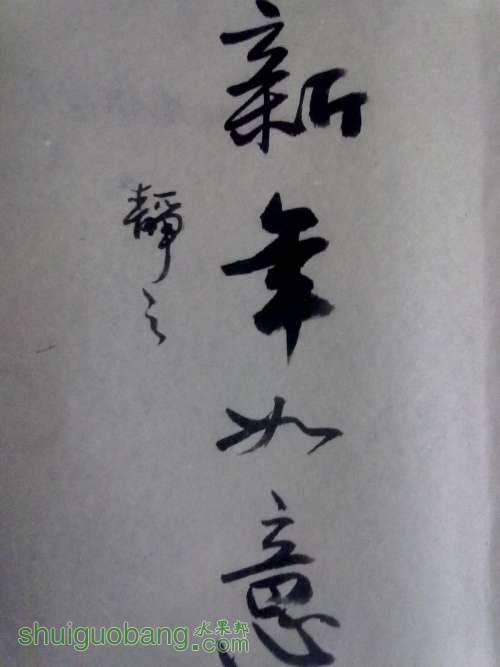 新年如意
靜之
水果邦
shuiguobang.com